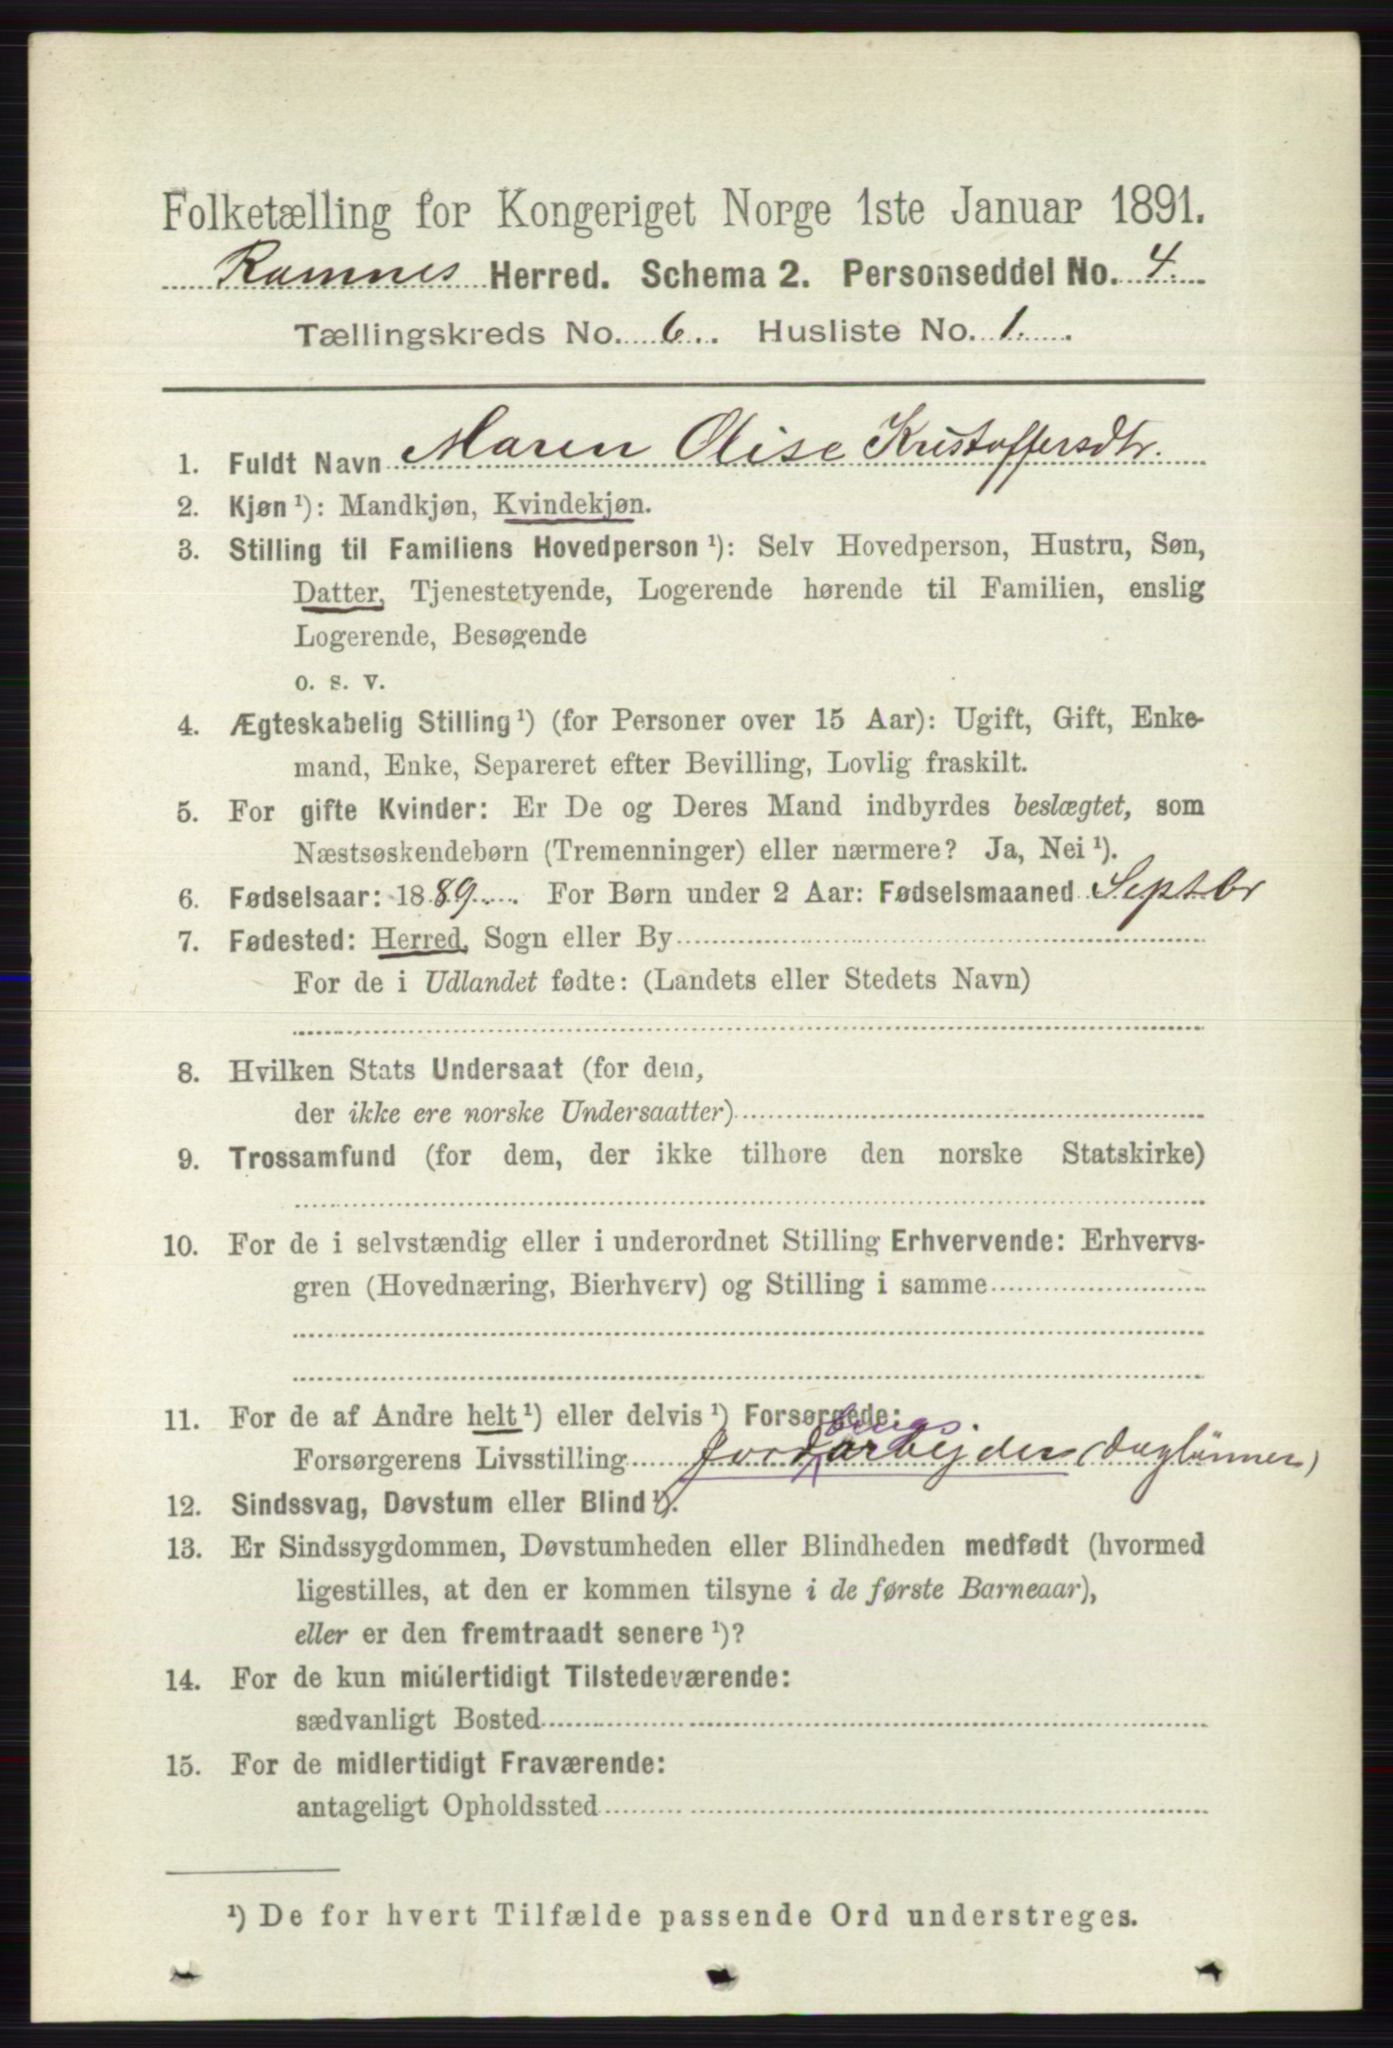 Folketælling for Kongeriget Norge 1ste Januar 1891.
Ramnes Herred. Schema 2. Personseddel No. 4.
Tællingskreds No. 6. Husliste No. 1.
1. Fuldt Navn Maren Olise Kristoffersdtr.
2. Kjøn ¹): Mandkjøn, Kvindekjøn.
3. Stilling til Familiens Hovedperson ¹): Selv Hovedperson, Hustru, Søn,
Datter, Tjenestetyende, Logerende hørende til Familien, enslig
Logerende, Besøgende
o. s. v.
4. Ægteskabelig Stilling ¹) (for Personer over 15 Aar): Ugift, Gift, Enke-
mand, Enke, Separeret efter Bevilling, Lovlig fraskilt.
5. For gifte Kvinder: Er De og Deres Mand indbyrdes beslægtet, som
Næstsøskendebørn (Tremenninger) eller nærmere? Ja, Nei ¹).
6. Fødselsaar: 1889. For Børn under 2 Aar: Fødselsmaaned Septbr
7. Fødested: Herred, Sogn eller By
For de i Udlandet fødte: (Landets eller Stedets Navn)
8. Hvilken Stats Undersaat (for dem,
der ikke ere norske Undersaatter)
9. Trossamfund (for dem, der ikke tilhøre den norske Statskirke)
10. For de i selvstændig eller i underordnet Stilling Erhvervende: Erhvervs-
gren (Hovednæring, Bierhverv) og Stilling i samme
11. For de af Andre helt ¹) eller delvis ¹) Forsørgede:
brugs.
Forsørgerens Livsstilling Jordarbejder (Daglønner)
12. Sindssvag, Døvstum eller Blind ¹).
13. Er Sindssygdommen, Døvstumheden eller Blindheden medfødt (hvormed
ligestilles, at den er kommen tilsyne i de første Barneaar),
eller er den fremtraadt senere ¹)?
14. For de kun midlertidigt Tilstedeværende:
sædvanligt Bosted
15. For de midlertidigt Fraværende:
antageligt Opholdssted
¹) De for hvert Tilfælde passende Ord understreges.